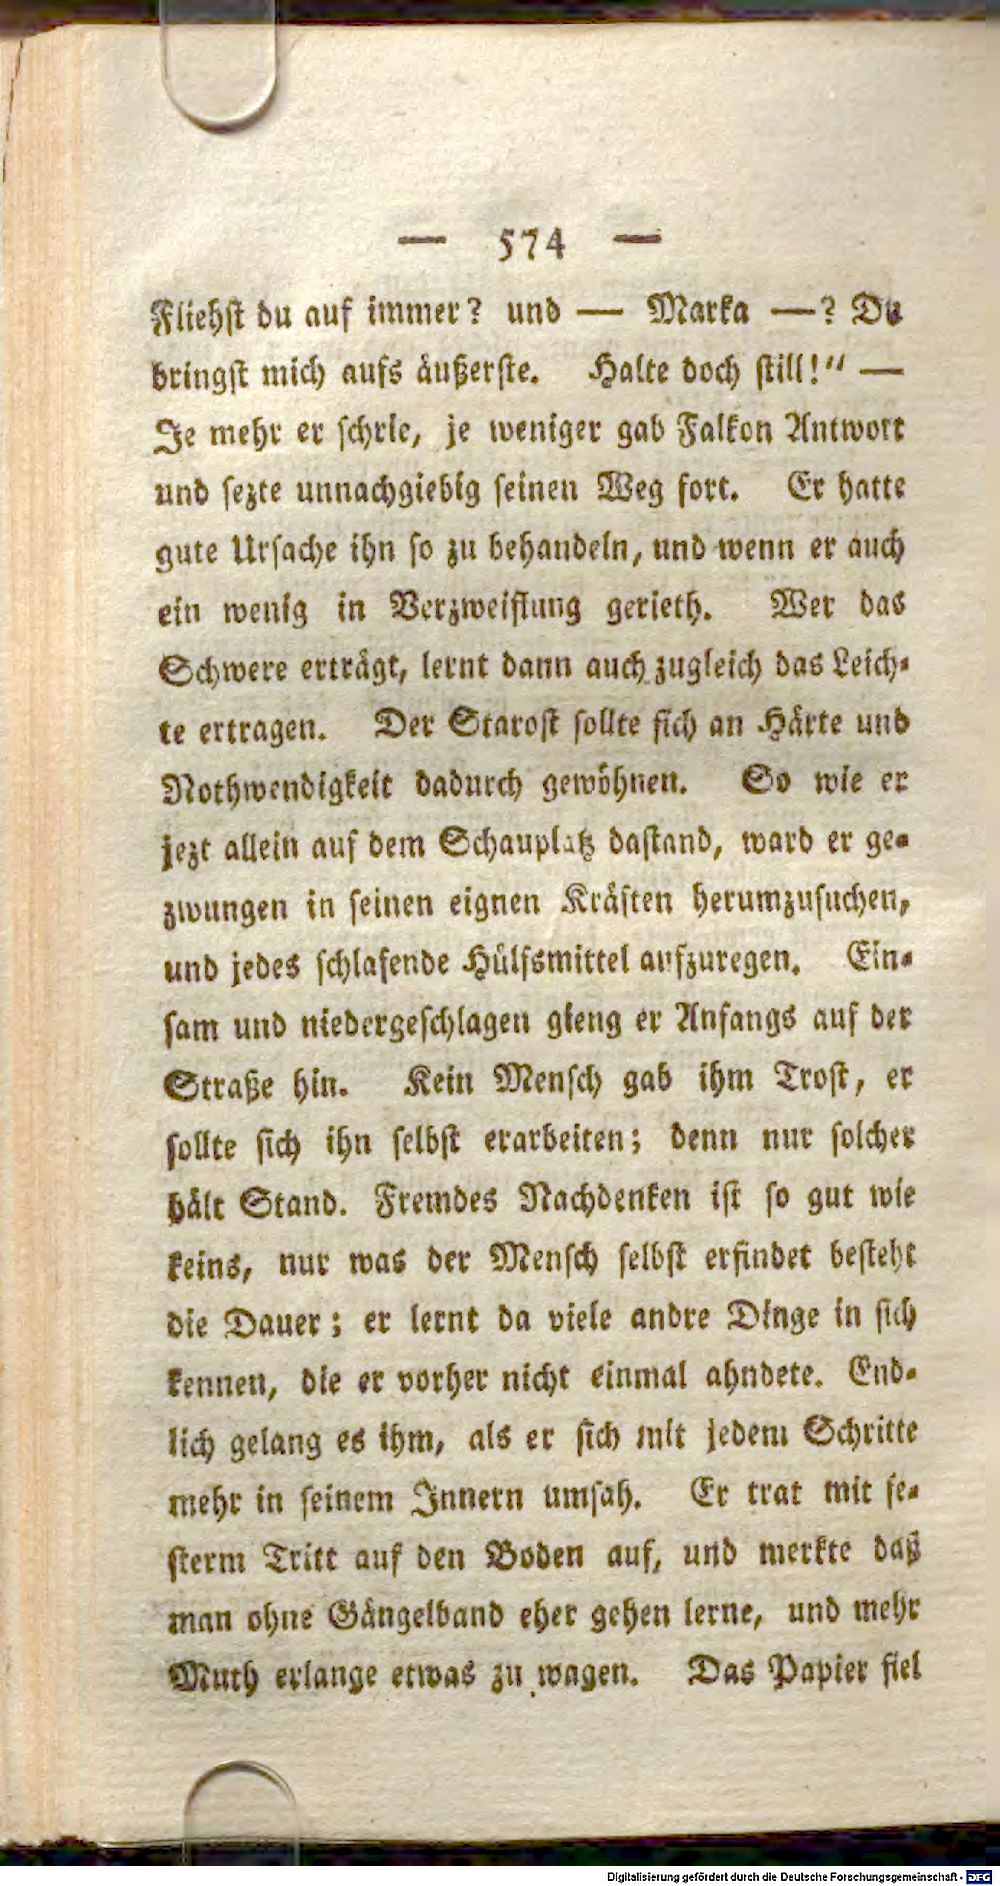 — 574 —
Fliehst du auf immer? und — Marka —? Du
bringst mich aufs äußerste. Halte doch still!“ —
Je mehr er schrie, je weniger gab Falkon Antwort
und sezte unnachgiebig seinen Weg fort. Er hatte
gute Ursache ihn so zu behandeln, und wenn er auch
ein wenig in Verzweiflung gerieth. Wer das
Schwere erträgt, lernt dann auch zugleich das Leich-
te ertragen. Der Starost sollte sich an Härte und
Nothwendigkeit dadurch gewöhnen. So wie er
jezt allein auf dem Schauplatz dastand, ward er ge-
zwungen in seinen eignen Kräften herumzusuchen,
und jedes schlafende Hülfsmittel aufzuregen. Ein-
sam und niedergeschlagen gieng er Anfangs auf der
Straße hin. Kein Mensch gab ihm Trost, er
sollte sich ihn selbst erarbeiten; denn nur solcher
hält Stand. Fremdes Nachdenken ist so gut wie
keins, nur was der Mensch selbst erfindet besteht
die Dauer; er lernt da viele andre Dinge in sich
kennen, die er vorher nicht einmal ahndete. End-
lich gelang es ihm, als er sich mit jedem Schritte
mehr in seinem Innern umsah. Er trat mit fe-
sterm Tritt auf den Boden auf, und merkte daß
man ohne Gängelband eher gehen lerne, und mehr
Muth erlange etwas zu wagen. Das Papier fiel
Digitalisierung gefördert durch die Deutsche Forschungsgemeinschaft - DFG